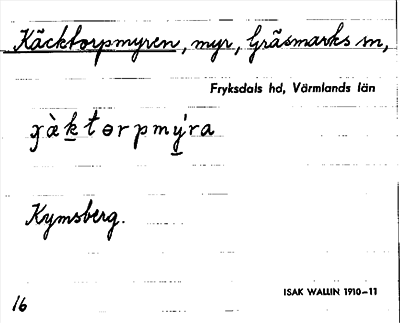 Käcktorpmyren, myr, Gräsmarks sn,
Fryksdals hd, Värmlands län
Kymsberg.
ISAK WALLIN 1910–11
16